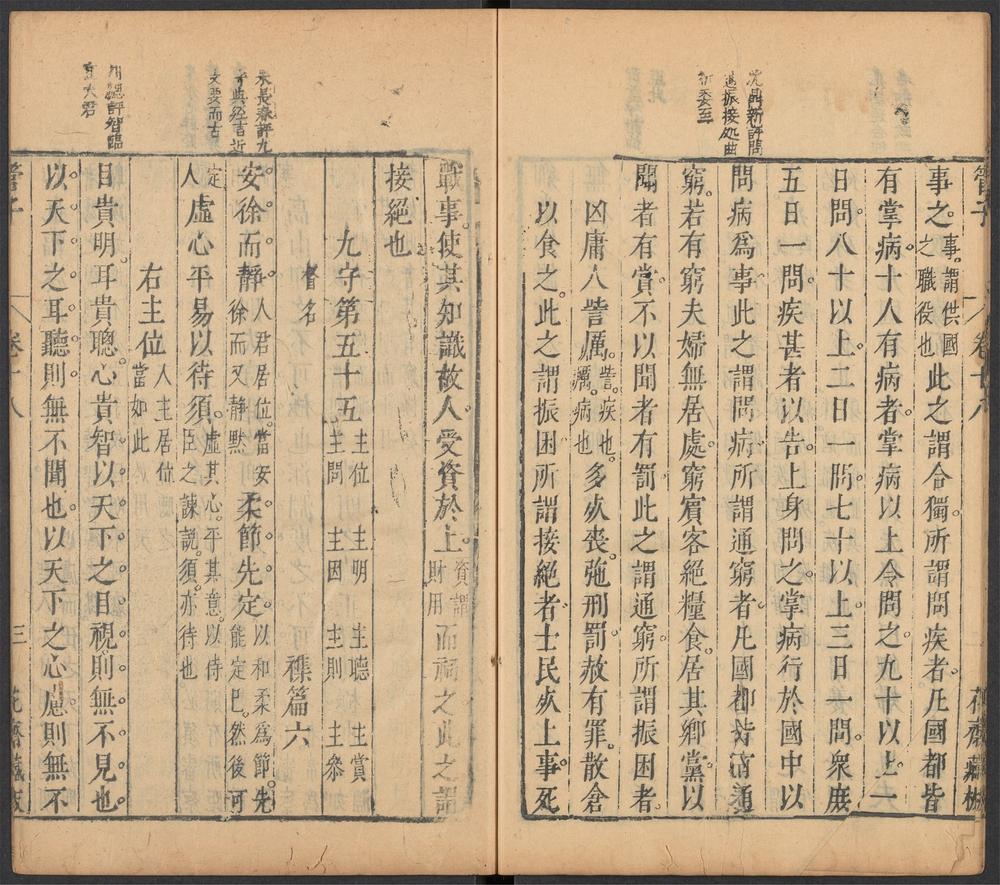 沈鼎新評問
遺振接処曲
折委至
管子 卷十八 花齋藏板
事之事謂供國之職役也此之謂合獨所謂問疾者凡國都皆
有掌病十人有病者掌病以上令問之九十以上一
日一問八十以上二日一問七十以上三日一問衆庶
五日一問疾甚者以告上身問之掌病行於國中以
問病爲事此之謂問病所謂通窮者凡國都皆有通
窮若有窮夫婦無居處窮賓客絕糧食居其鄉黨以
聞者有賞不以聞者有罰此之謂通窮所謂振困者
凶庸人訾厲訾疾也厲病也多死喪弛刑罰赦有罪散倉
以食之此之謂振困所謂接絕者士民死上事死
戰事使其知識故人受資於上資謂財用而祠之此之謂
接絕也
九守第五十五 主位 主明 主聽 主賞 主問 主因 主則 主參
督名 襍篇六
朱長春評九
守典經言近
文要而古
安徐而靜人君居位當安徐而又靜默柔節先定以和柔爲節先能定已然後可
定人虛心平易以待須虛其心平其意以待臣之諫說須亦待也
右主位人主居位當如此
目貴明耳貴聰心貴智以天下之目視則無不見也
以天下之耳聽則無不聞也以天下之心慮則無不
評智臨
大君
管子 卷十八 三 花齋藏板